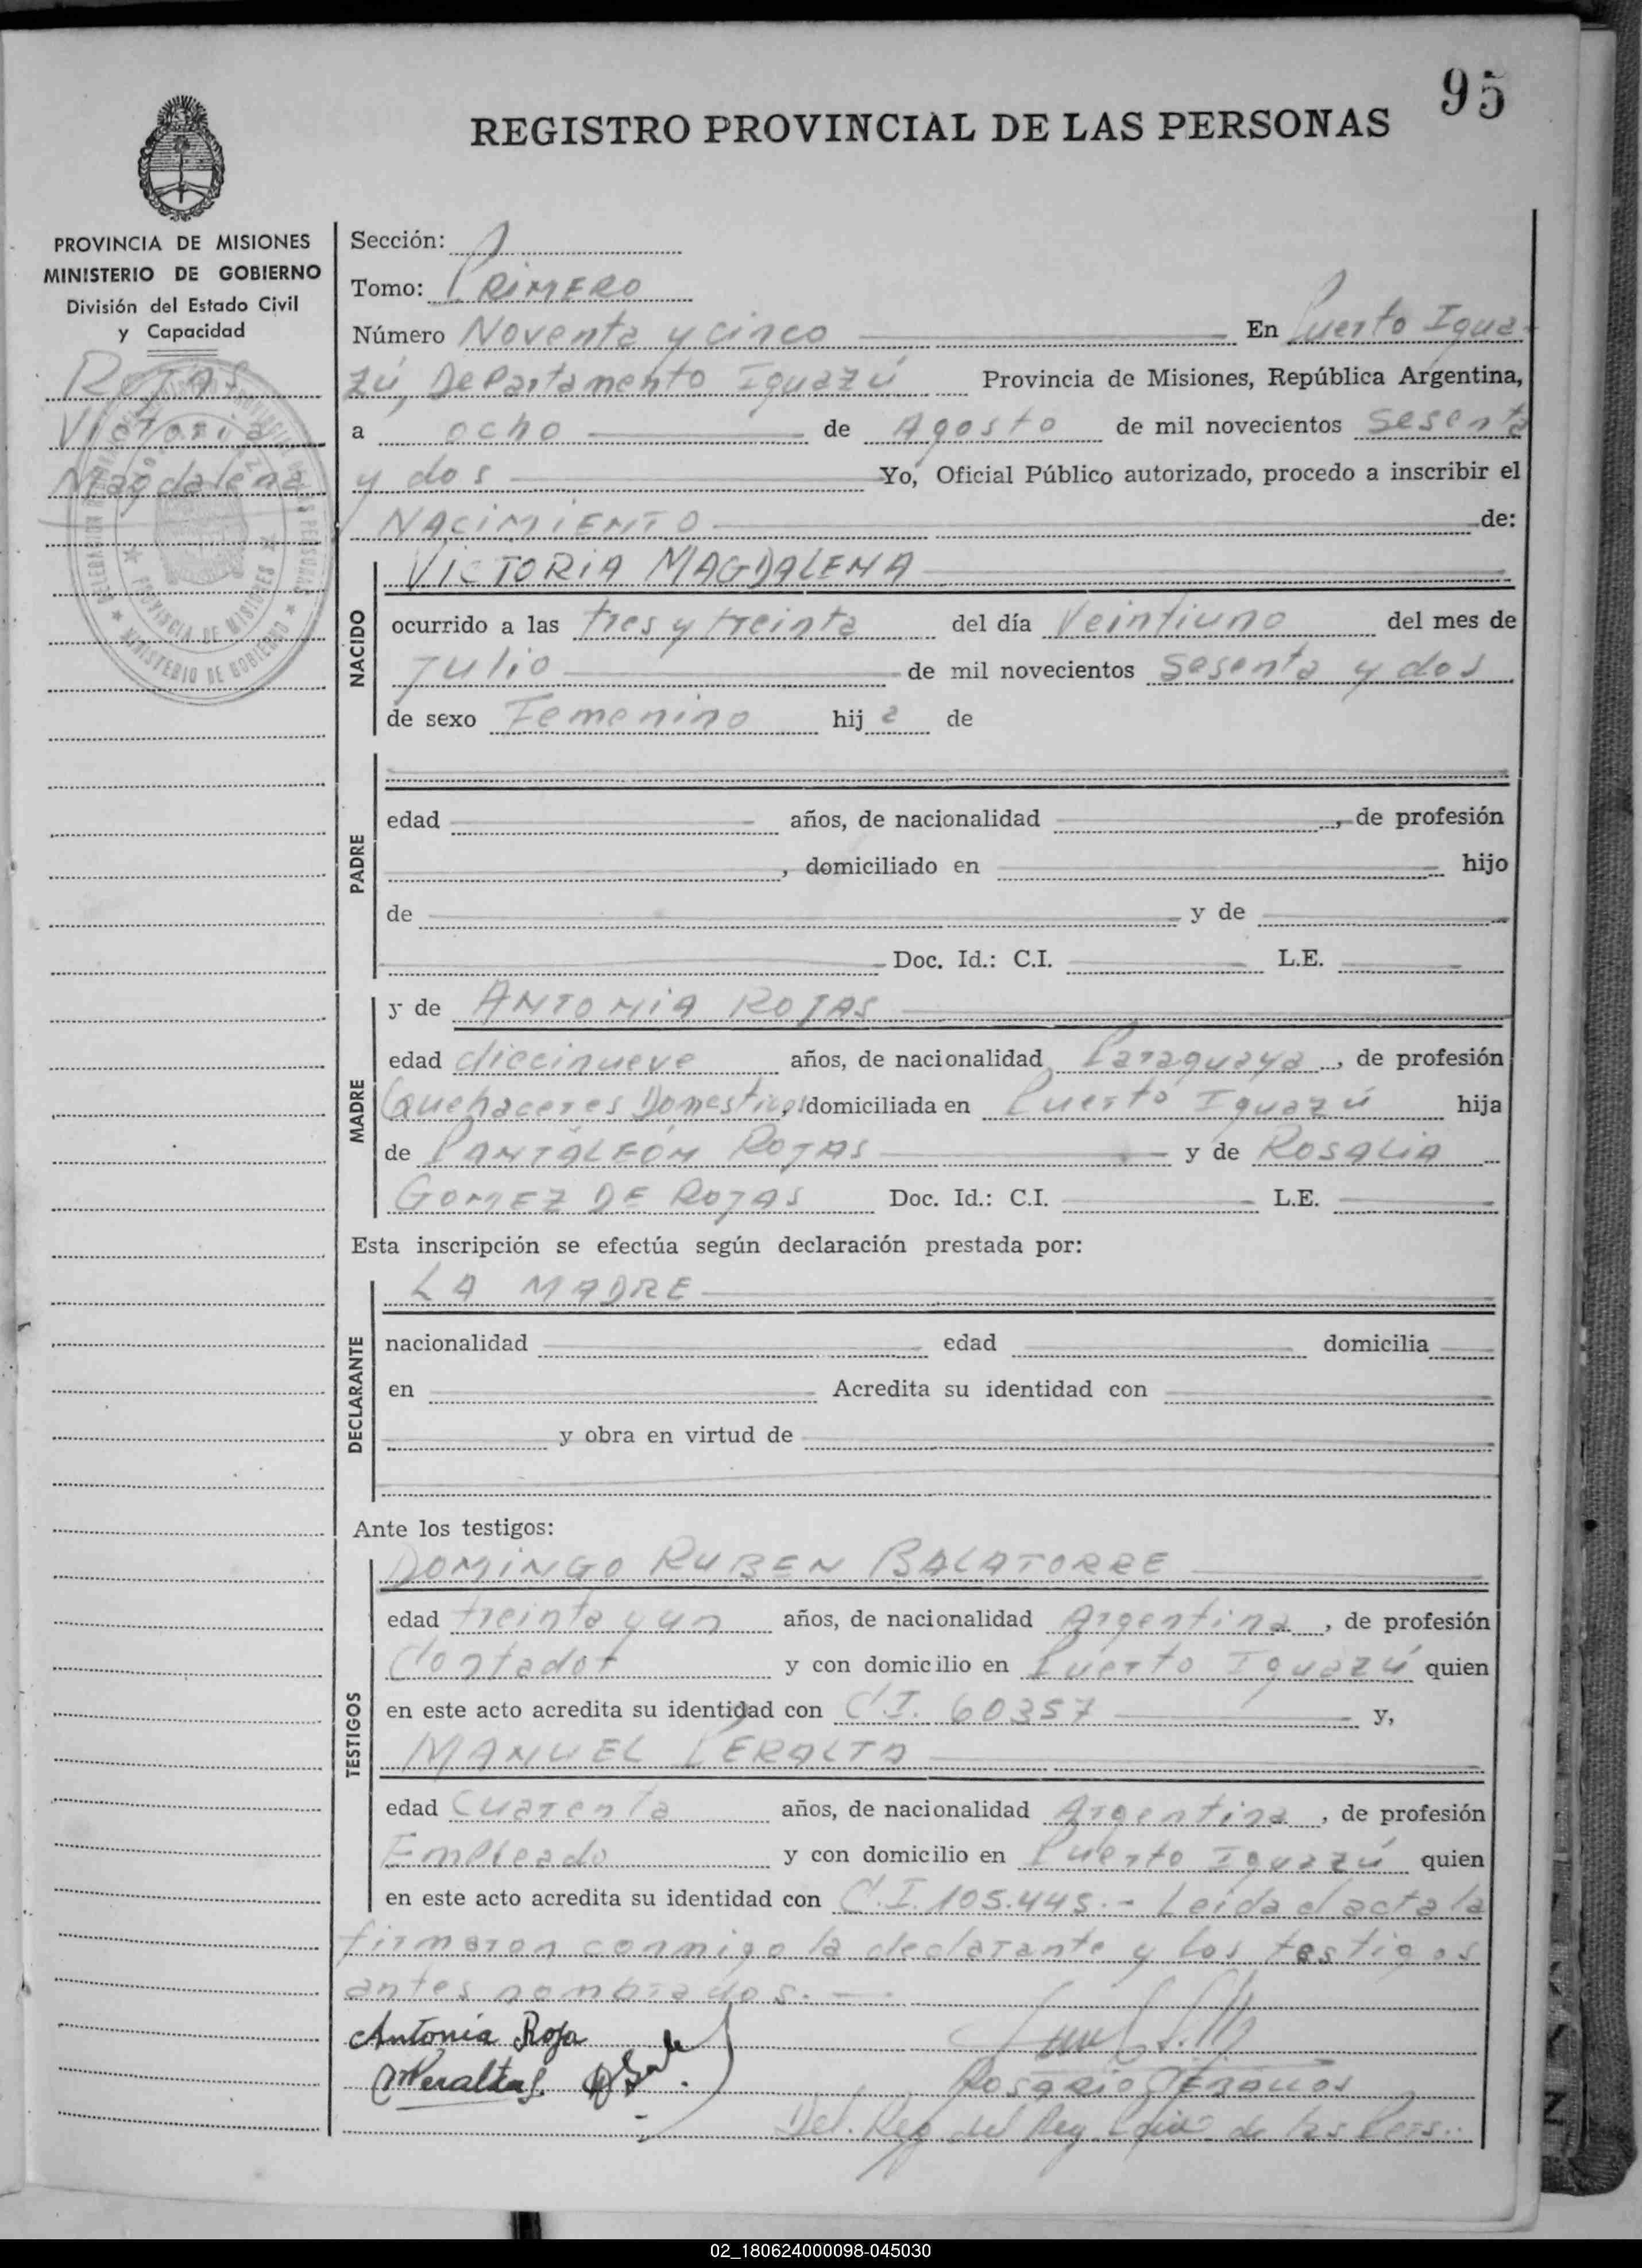 95
REGISTRO PROVINCIAL DE LAS PERSONAS
PROVINCIA DE MISIONES
MINISTERIO DE GOBIERNO
División del Estado Civil
y Capacidad
Rojas
Victoria
Magdalena
PROVINCIA DE MISIONES
MINISTERIO DE GOBIERNO
Sección:
Tomo: PRIMERO
Número Noventa y cinco En Puerto Igua-
zú, Departamento Iguazú Provincia de Misiones, República Argentina,
a ocho de Agosto de mil novecientos sesenta
y dos Yo, Oficial Público autorizado, procedo a inscribir el
NACIMIENTO de:
NACIDO
VICTORIA MAGDALENA
ocurrido a las tres y treinta del día Veintiuno del mes de
Julio de mil novecientos sesenta y dos
de sexo Femenino hij a de
PADRE
edad años, de nacionalidad , de profesión
, domiciliado en hijo
de y de
Doc. Id.: C.I. L.E.
MADRE
y de ANTONIA ROJAS
edad diecinueve años, de nacionalidad Paraguaya, de profesión
Quehaceres Domesticos, domiciliada en Puerto Iguazú hija
de PANTALEÓN ROJAS y de ROSALIA
GOMEZ DE ROJAS Doc. Id.: C.I. L.E.
Esta inscripción se efectúa según declaración prestada por:
DECLARANTE
LA MADRE
nacionalidad edad domicilia
en Acredita su identidad con
y obra en virtud de
Ante los testigos:
TESTIGOS
DOMINGO RUBEN BALATORRE
edad treinta y un años, de nacionalidad Argentina, de profesión
Contador y con domicilio en Puerto Iguazú quien
en este acto acredita su identidad con C.I. 60357 y,
MANUEL PERALTA
edad Cuarenta años, de nacionalidad Argentina, de profesión
Empleado y con domicilio en Puerto Iguazú quien
en este acto acredita su identidad con C.I. 105.445.- Leida el acta la
firmaron conmigo la declarante y los testigos
antes nombrados.-
Antonia Roja
MPeralta
Rosario
Del. Reg. del Reg. de las Pers.
02_180624000098-045030